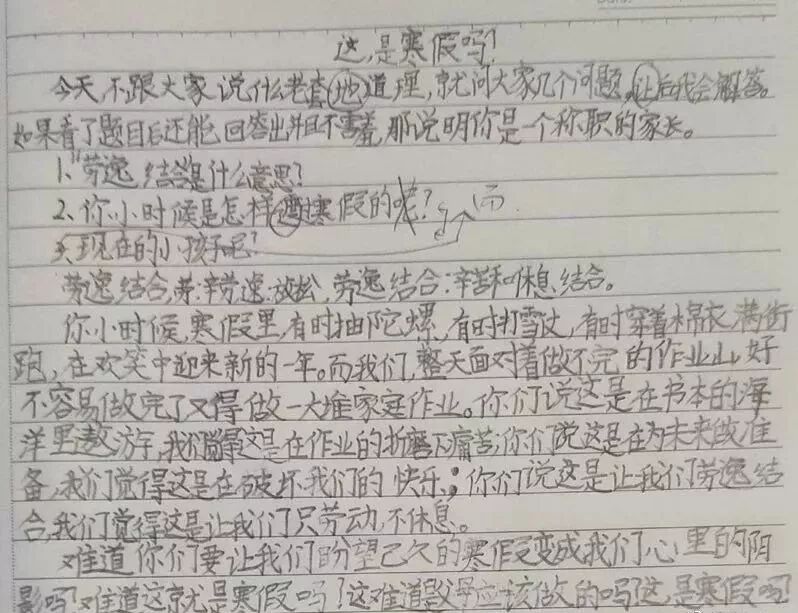 这,是寒假吗?
今天,不跟大家说什么老套地道理,就问大家几个问题,让后我会解答。
如果看了题目后还能回答出并且不害羞,那说明你是一个称职的家长。
1、"劳逸结合"是什么意思?
2、你小时候是怎样过寒假的呢?而
3、现在的小孩子呢?
劳逸结合,劳:辛劳 逸:放松,劳逸结合:辛苦和休息结合。
你小时候,寒假里,有时抽陀螺,有时打雪仗,有时穿着棉衣满街
跑,在欢笑中迎来新的一年。而我们,整天面对着做不完的作业山,好
不容易做完了又得做一大堆家庭作业。你们说这是在书本的海
洋里遨游,我们觉得这是在作业的折磨下痛苦;你们说这是在为未来做准
备,我们觉得这是在破坏我们的快乐;你们说这是让我们劳逸结
合,我们觉得这是让我们只劳动,不休息。
难道你们要让我们盼望已久的寒假变成我们心里的阴
影吗?难道这就是寒假吗?这难道父母应该做的吗?这,是寒假吗